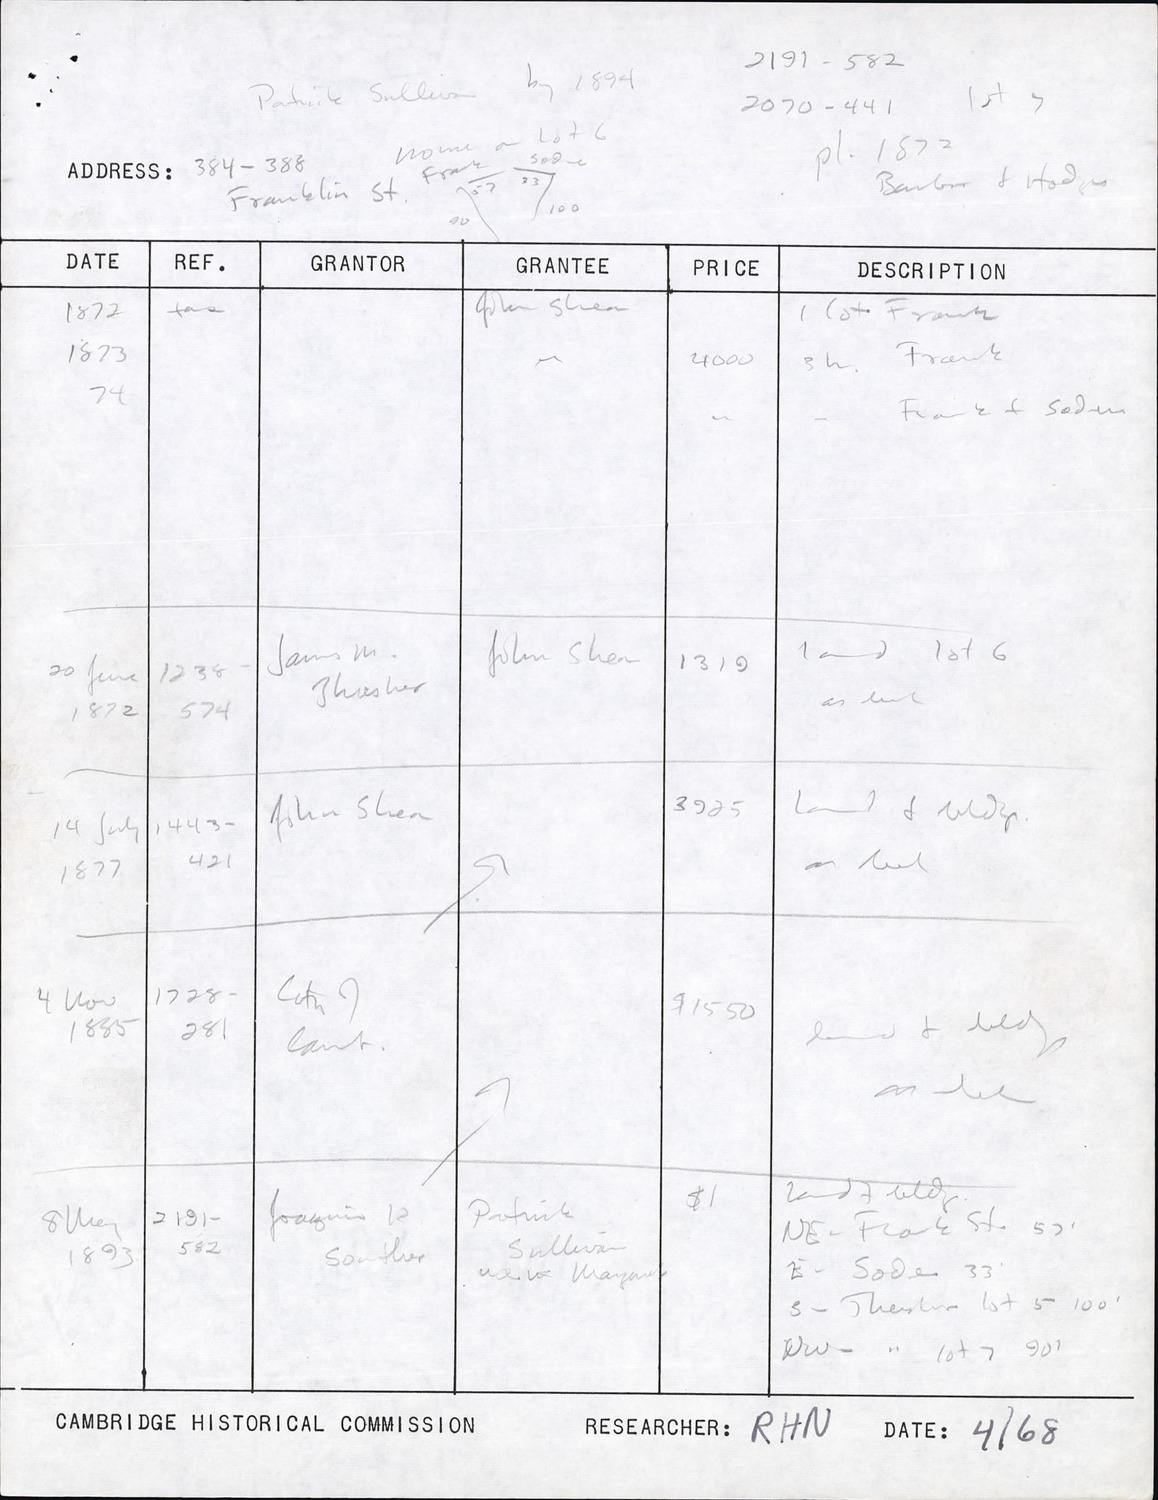 2191-582
Patrick Sullivan by 1894
2070-441 lot 7
on Lot 6
pl. 1872
ADDRESS: 384-388
Frank Soden
Franklin St. 57 33
Barbour & Hodges
90 100
DATE REF. GRANTOR GRANTEE PRICE DESCRIPTION
1872 tax John Shea 1 lot Frank
1873 " 4000 3 h. Frank
74 " " Frank & Soden
20 June 1238- James M. John Shea 1319 land lot 6
1872 574 Thresher
14 July 1443- John Shea 3925 land & bldg.
1877 421
4 Nov 1728- City of $1550 land & bldg
1885 281 Camb.
8 May 2191- Joaquin K Patrick $1 land & bldg.
1893 582 Souther Sullivan NE- Frank St. 57'
Margaret E- Soden 33'
S- Thresher lot 5 100'
NW- " lot 7 90'
CAMBRIDGE HISTORICAL COMMISSION RESEARCHER: RHN DATE: 4/68